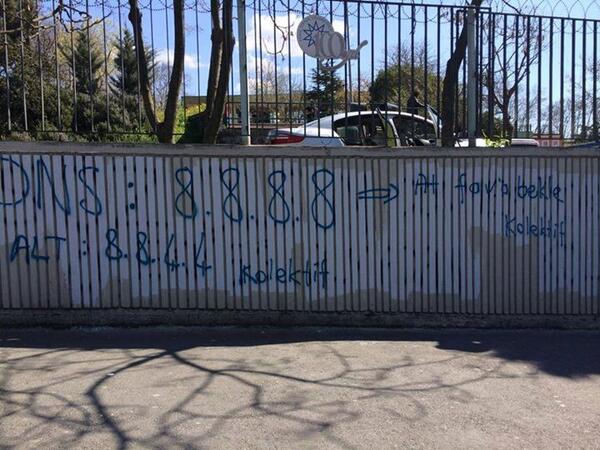 DNS : 8.8.8.8 ⇒ At fav'ı bekle
Kolektif
ALT : 8.8.4.4 Kolektif